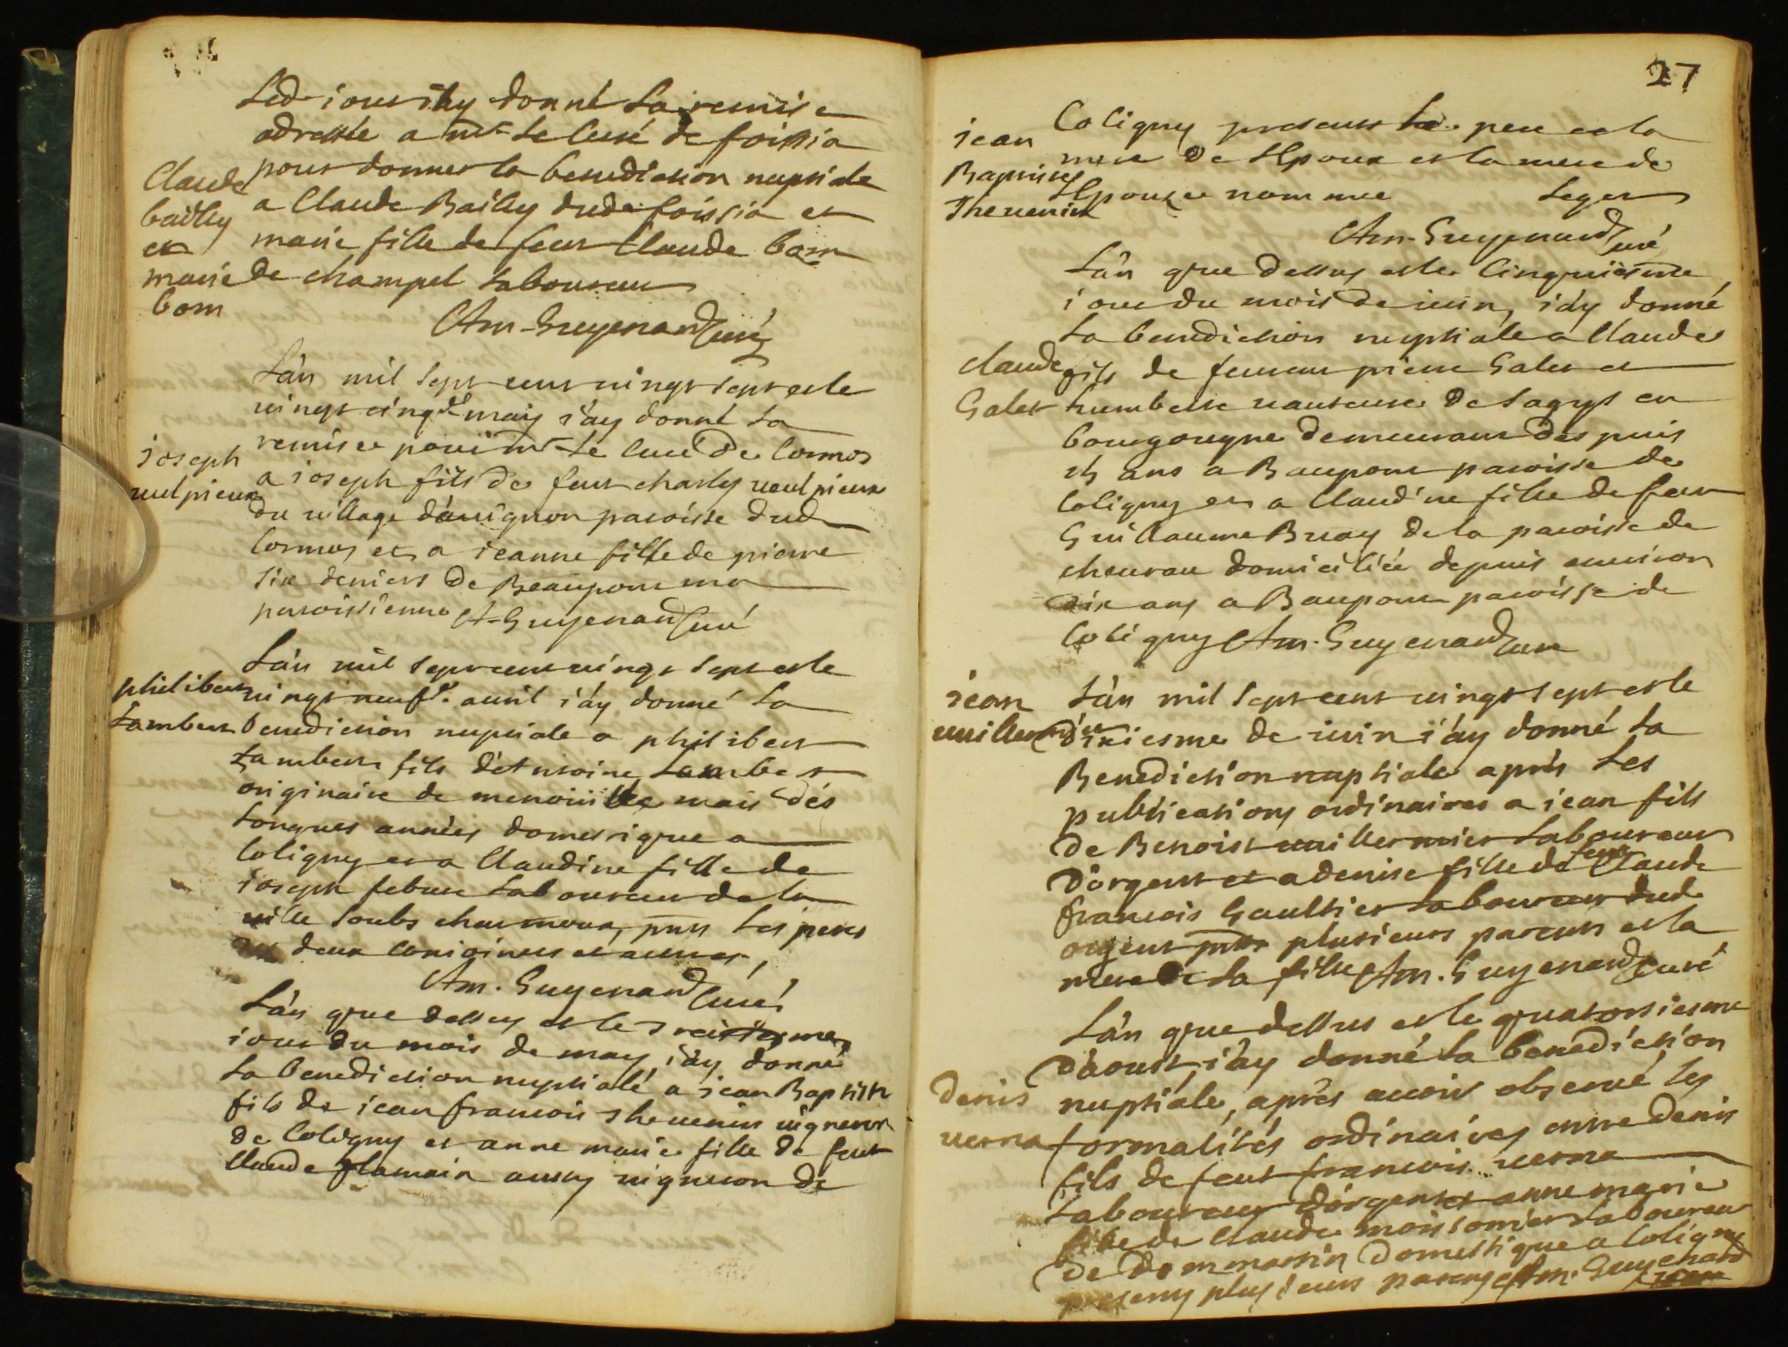 Led iour i'ay donné La remise
adressée a mr Le Curé de foissia
pour donner la benediction nuptiale
Claude
bailly
et
marie
bom
a Claude Bailly dud foissia et
marie fille de feu Claude bom
de champel Laboureur
Am-Guyenard curé
L'an mil sept cent vingt sept et le
vingt cinq mars i'ay donné La
remise pour mr Le Curé de Cormos
joseph
vulpieux
a joseph fils de feu charles vulpieux
du village d'auignon paroisse dud
Cormos et a jeanne fille de pierre
six deniers de Beaupont ma
paroissienne A-Guyenard curé
L'an mil sept cent vingt sept et le
philibert
Lambert
vingt neuf avril i'ay donné La
benediction nuptiale a philibert
Lambert fils d'Antoine Lambert
originaire de mais dés
Longues années domestique a
Coligny et a Claudine fille de
joseph febure Laboureur de la
ville soubs charmoux, pnts Les peres
des deux conioints et autres,
Am. Guyenard curé
L'an que dessus et le treisiesme
iour du mois de may i'ay donné
La benediction nuptiale a jean Baptiste
fils de jean francois theuenin vigneron
de Coligny et anne marie fille de feu
Claude flamain aussy vigneron de
27
jean
Baptiste
Theuenin
Coligny presents Le pere et la
mere de L'Epoux et la mere de
L'Epouse nommée Leger
Am-Guyenard curé
L'an que dessus et le Cinquiesme
iour du mois de iuin, i'ay donné
La benediction nuptiale a Claude
claude
Galet
fils de pierre Galet et
humberte de Sagys en
bourgougne demeurant despuis
ans a Baupont paroisse de
Coligny et a Claudine fille de feu
Guillaume Buay de la paroisse de
cheurau domiciliée depuis environ
six ans a Baupont paroisse de
Coligny Am. Guyenard cure
jean
vuillermier
L'an mil sept cent vingt sept et le
dixiesme de iuin i'ay donné La
Benediction nuptiale aprés Les
publications ordinaires a jean fils
de Benoist vuillermier Laboureur
D'orgent et a denise fille de feu Claude
francois Gaultier Laboureur dud
orgent pnts plusieurs parents et la
mere de La fille Am. Guyenard curé
L'an que dessus et le quatorsiesme
D'aoust i'ay donné La benediction
denis
verna
nuptiale, aprés auoir obserué les
formalités ordinaires entre denis
fils de feu francois verna
Laboureur d'orgent et anne marie
fille de Claude moissonier Laboureur
de Dommartin Domestique a Coligny
presents plusieurs parents Am. Guyenard
cure